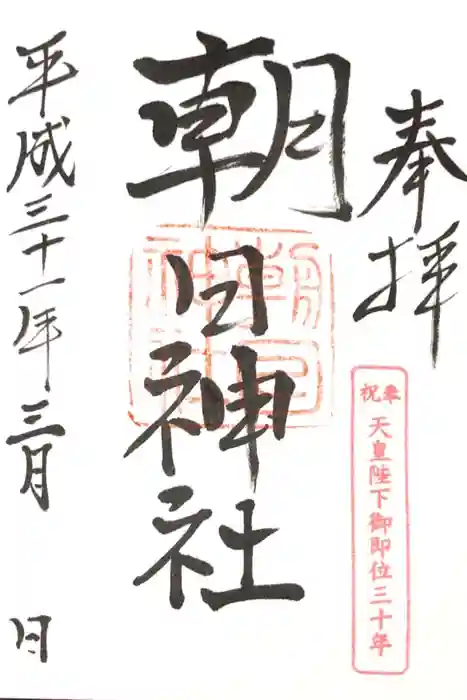 奉拝
奉祝 天皇陛下御即位三十年
朝日神社
朝日神社
平成三十一年三月 日